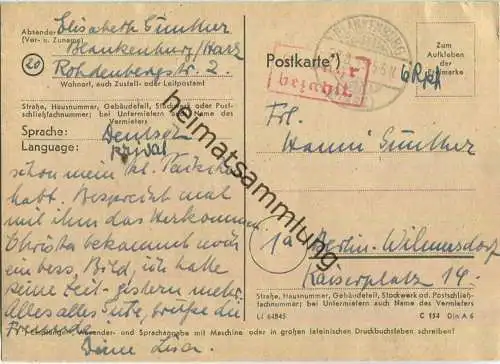 Absender: Elisabeth Günther
(Vor- u. Zuname)
Blankenburg/Harz
20 Rohdenbergstr. 2.
Wohnort, auch Zustell- oder Leitpostamt
Straße, Hausnummer, Gebäudeteil, Stockwerk oder Post-
schließfachnummer; bei Untermietern auch Name des
Vermieters
Sprache: Deutsch
Language: privat
schon mein kl.
habt. Besprecht mal
mit ihm das Herkommen
Christa bekommt noch
ein bess. Bild, ich hatte
keine Zeit gestern mehr.
Alles alles Gute, Grüße die
Freunde
Deine Lisa.
*) Empfänger-, Versender- und Sprachangabe mit Maschine oder in großen lateinischen Druckbuchstaben schreiben!
Postkarte*)
BLANKENBURG
bezahlt
6 Rpf
Zum
Aufkleben
der
Freimarke
Frl.
Hanni Günther
1a Berlin-Wilmersdorf
Kaiserplatz 14.
Straße, Hausnummer, Gebäudeteil, Stockwerk od. Postschließ-
fachnummer; bei Untermietern auch Name des Vermieters
LJ 64845 C 154 Din A 6
heimatsammlung.de